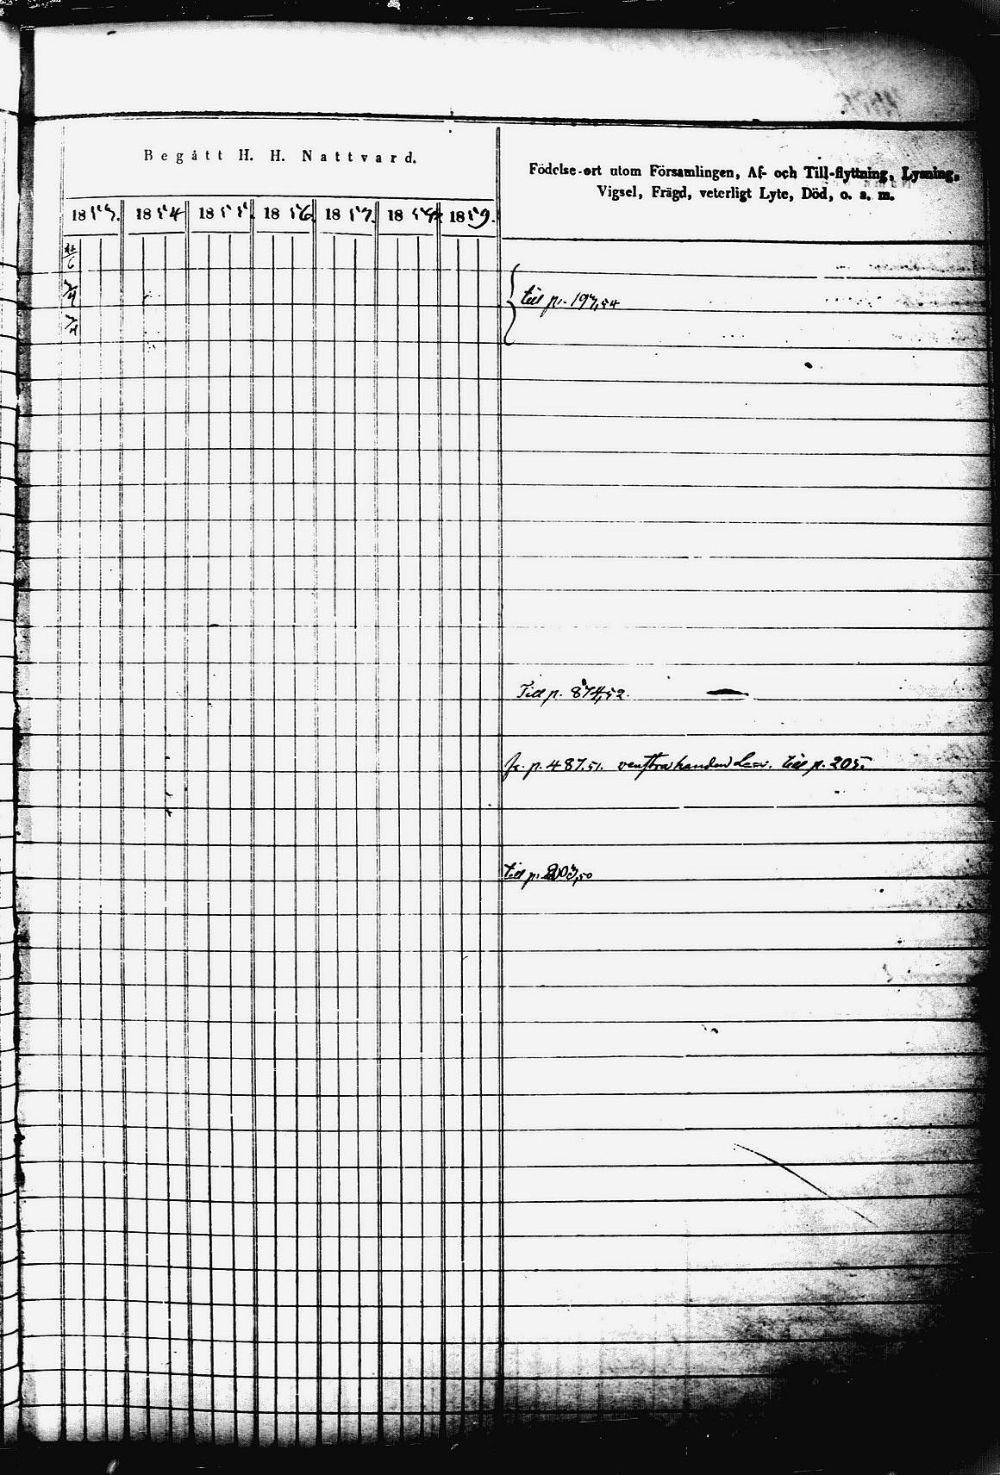 Begått H. H. Nattvard.
Födelse-ort utom Församlingen, Af- och Till-flyttning, Lysning,
Vigsel, Frägd, veterligt Lyte, Död, o. s. m.
1853. 1854 1855. 1856. 1857. 1858. 1859.
till p. 197,54
Till p. 874,52.
fr. p. 487.51. venstra handen till p. 205.
till p. 203,50